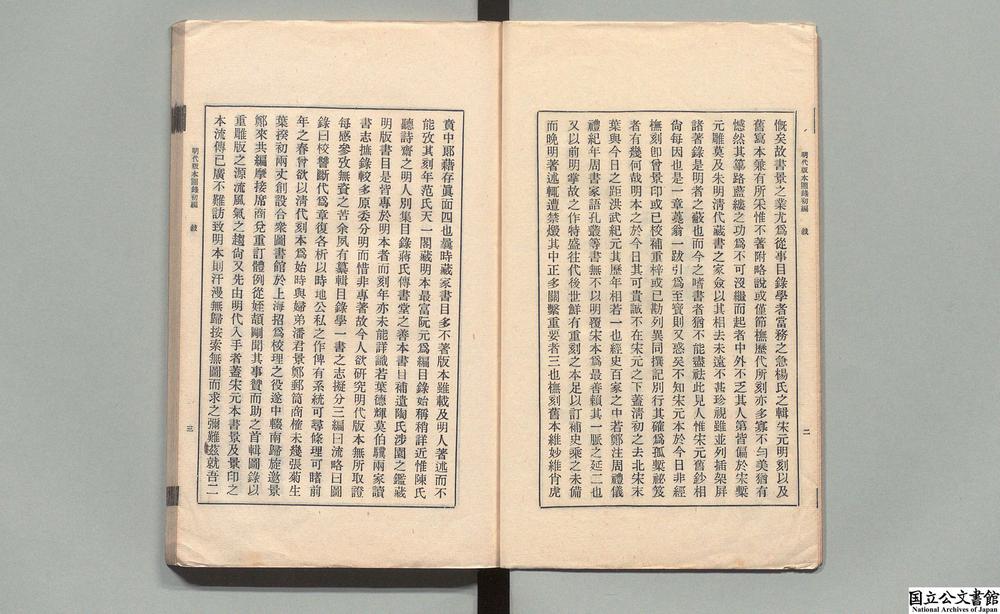 明代版本圖錄初編 敍 二
慨矣故書景之業尤爲從事目錄學者當務之急楊氏之輯宋元明刻以及
舊寫本兼有所采惟不著附略說或僅節橅歷代所刻亦多寡不勻美猶有
憾然其篳路藍縷之功爲不可沒繼而起者中外不乏其人第皆偏於宋槧
元雕莫及朱明清代藏書之家僉以其相去未遠不甚珍視雖並列插架屏
諸著錄是明者之蔽也而今之嗜書者猶不能盡祛此見人惟宋元舊鈔相
尙每因也是一章蕘翁一跋引爲至寶則又惑矣不知宋元本於今日非經
橅刻卽曾景印或已校補重梓或已勘列異同撰記別行其確爲孤槧祕笈
者有幾何哉明本之於今日其可貴誠不在宋元之下蓋清初之去北宋末
葉與今日之距洪武紀元其歷年相若一也經史百家之中若鄭注周禮儀
禮紀年周書家語孔叢等書無不以明覆宋本爲最善賴其一脈之延二也
又以前明掌故之作特盛往代後世鮮有重刻之本足以訂補史乘之未備
而晚明著述輒遭禁燬其中正多關繫重要者三也橅刻舊本維妙維肖虎
賁中郎藉存眞面四也曩時藏家書目多不著版本雖載及明人著述而不
能攷其刻年范氏天一閣藏明本最富阮元爲編目錄始稱稍詳近惟陳氏
聽詩齋之明人別集目錄蔣氏傳書堂之善本書目補遺陶氏涉園之鑑藏
明版書目是皆專於明本者而刻年亦未能詳識若葉德輝莫伯驥兩家讀
書志摭錄較多原委分明而惜非專著故今人欲研究明代版本無所取證
每感參攷無資之苦余夙有纂輯目錄學一書之志擬分三編曰流略曰圖
錄曰校讐斷代爲章復各析以時地公私之作俾有系統可尋條理可睹前
年之春曾欲以清代刻本爲始時與婦弟潘君景鄭郵筒商榷未幾張菊生
葉揆初兩丈創設合衆圖書館於上海招爲校理之役遂中輟南歸旋邀景
鄭來共編摩接席商兌重訂體例從姪頡剛聞其事贊而助之首輯圖錄以
重雕版之源流風氣之趨尙又先由明代入手者蓋宋元本書景及景印之
本流傳已廣不難訪致明本則汗漫無歸按索無圖而求之彌難茲就吾二
明代版本圖錄初編 敍 三
国立公文書館
National Archives of Japan